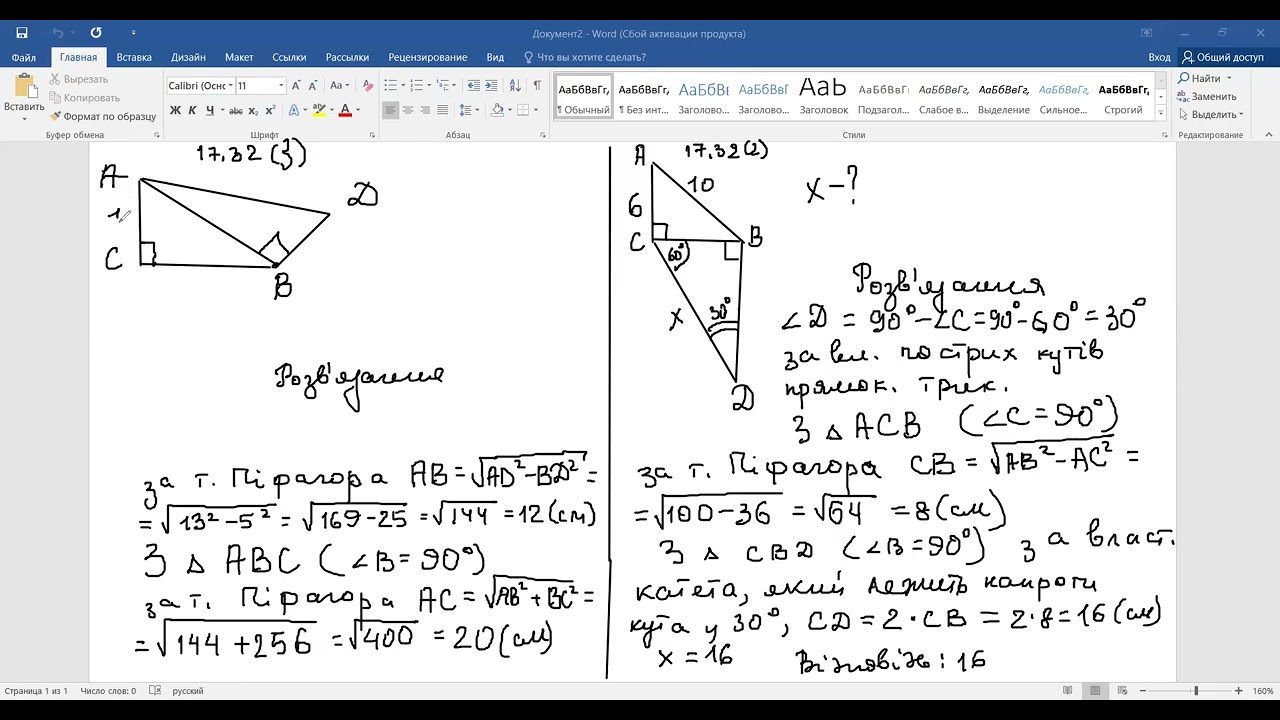 Документ2 - Word (Сбой активации продукта)
Файл Главная Вставка Дизайн Макет Ссылки Рассылки Рецензирование Вид Что вы хотите сделать? Вход Общий доступ
Вставить
Вырезать
Копировать
Формат по образцу
Буфер обмена
Calibri (Оснс 11
Ж К Ч abc x₂ x²
Шрифт
Абзац
АаБбВвГг, АаБбВвГг, АаБбВв АаБбВвГ АаЬ АаБбВвГ АаБбВвГг АаБбВвГг АаБбВвГг, АаБбВвГг,
¶ Обычный ¶ Без инт... Заголово... Заголово... Заголовок Подзагол... Слабое в... Выделение Сильное... Строгий
Стили
Найти
Заменить
Выделить
Редактирование
17.32 (3)
A
D
C
B
Розв'язання
за т. Піфагора AB = √AD² - BD² =
= √13² - 5² = √169 - 25 = √144 = 12 (см)
З △ ABC (∠B = 90°)
за т. Піфагора AC = √AB² + BC² =
= √144 + 256 = √400 = 20 (см)
17.32 (2)
A
10
x - ?
6
C
B
60°
30°
x
D
Розв'язання
∠D = 90° - ∠C = 90° - 60° = 30°
за вл. гострих кутів
прямок. трик.
З △ ACB (∠C = 90°)
за т. Піфагора CB = √AB² - AC² =
= √100 - 36 = √64 = 8 (см)
З △ CBD (∠B = 90°) за власт.
катета, який лежить напроти
кута у 30°, CD = 2 · CB = 2 · 8 = 16 (см)
x = 16 Відповідь: 16
Страница 1 из 1 Число слов: 0 русский 160%